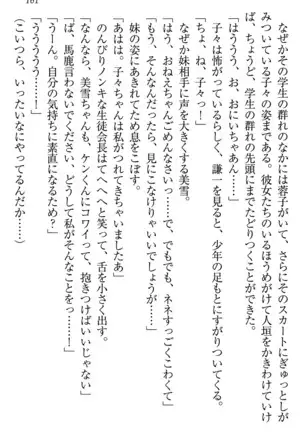 101
なぜかその学生の群れのなかには蓉子がいて、さらにそのスカートにぎゅっとしが
みついている子々の姿まである。彼女たちのいるほうめがけて人垣をかきわけていけ
ば、ちょうど、学生の群れの先頭にまでたどりつくことができた。
「はうううう、お、おにいちゃあん……」
子々は怖がっているらしく、謙一を見ると、少年の足もとにすがりつく。
「ちょ、ね、子々っ!」
なぜか妹相手に声を大きくする美雪。
「はう、おねえちゃんごめんなさいっ、で、でもでも、ネネすっごくこわくて」
「もう、そんなんだったら、見にこなけりゃいいでしょうが……」
妹の姿にあきれてため息をこぼす。
「あはは。子々ちゃんは私がつれてきちゃいましたあ」
のんびりノンキな生徒会長はてへへと笑って、舌を小さく出す。
「なんなら、美雪ちゃんも、ケンくんにコワイって、抱きつけばいいじゃない」
「ば、馬鹿言わないでください、どうして私がそんなことをっ……!」
「うう〜ん。自分の気持ちに素直になるため?」
「うううううう……!」
(こいつら、いったいなにやってるんだか……)